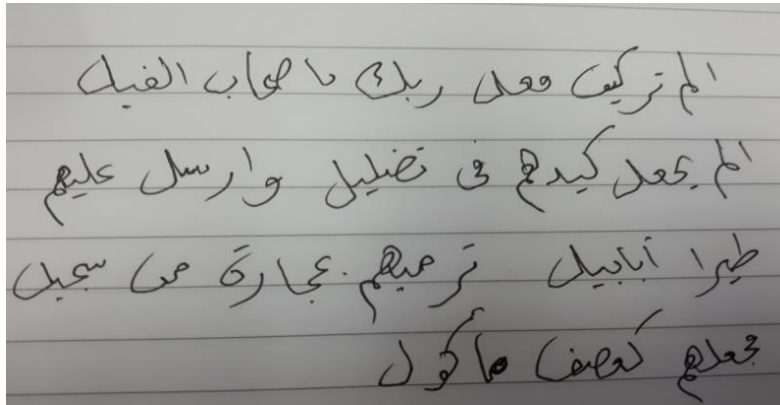 الم تر كيف فعل ربك باصحاب الفيل
الم يجعل كيدهم فى تضليل وارسل عليهم
طيرا أبابيل ترميهم بحجارة من سجيل
فجعلهم كعصف مأكول